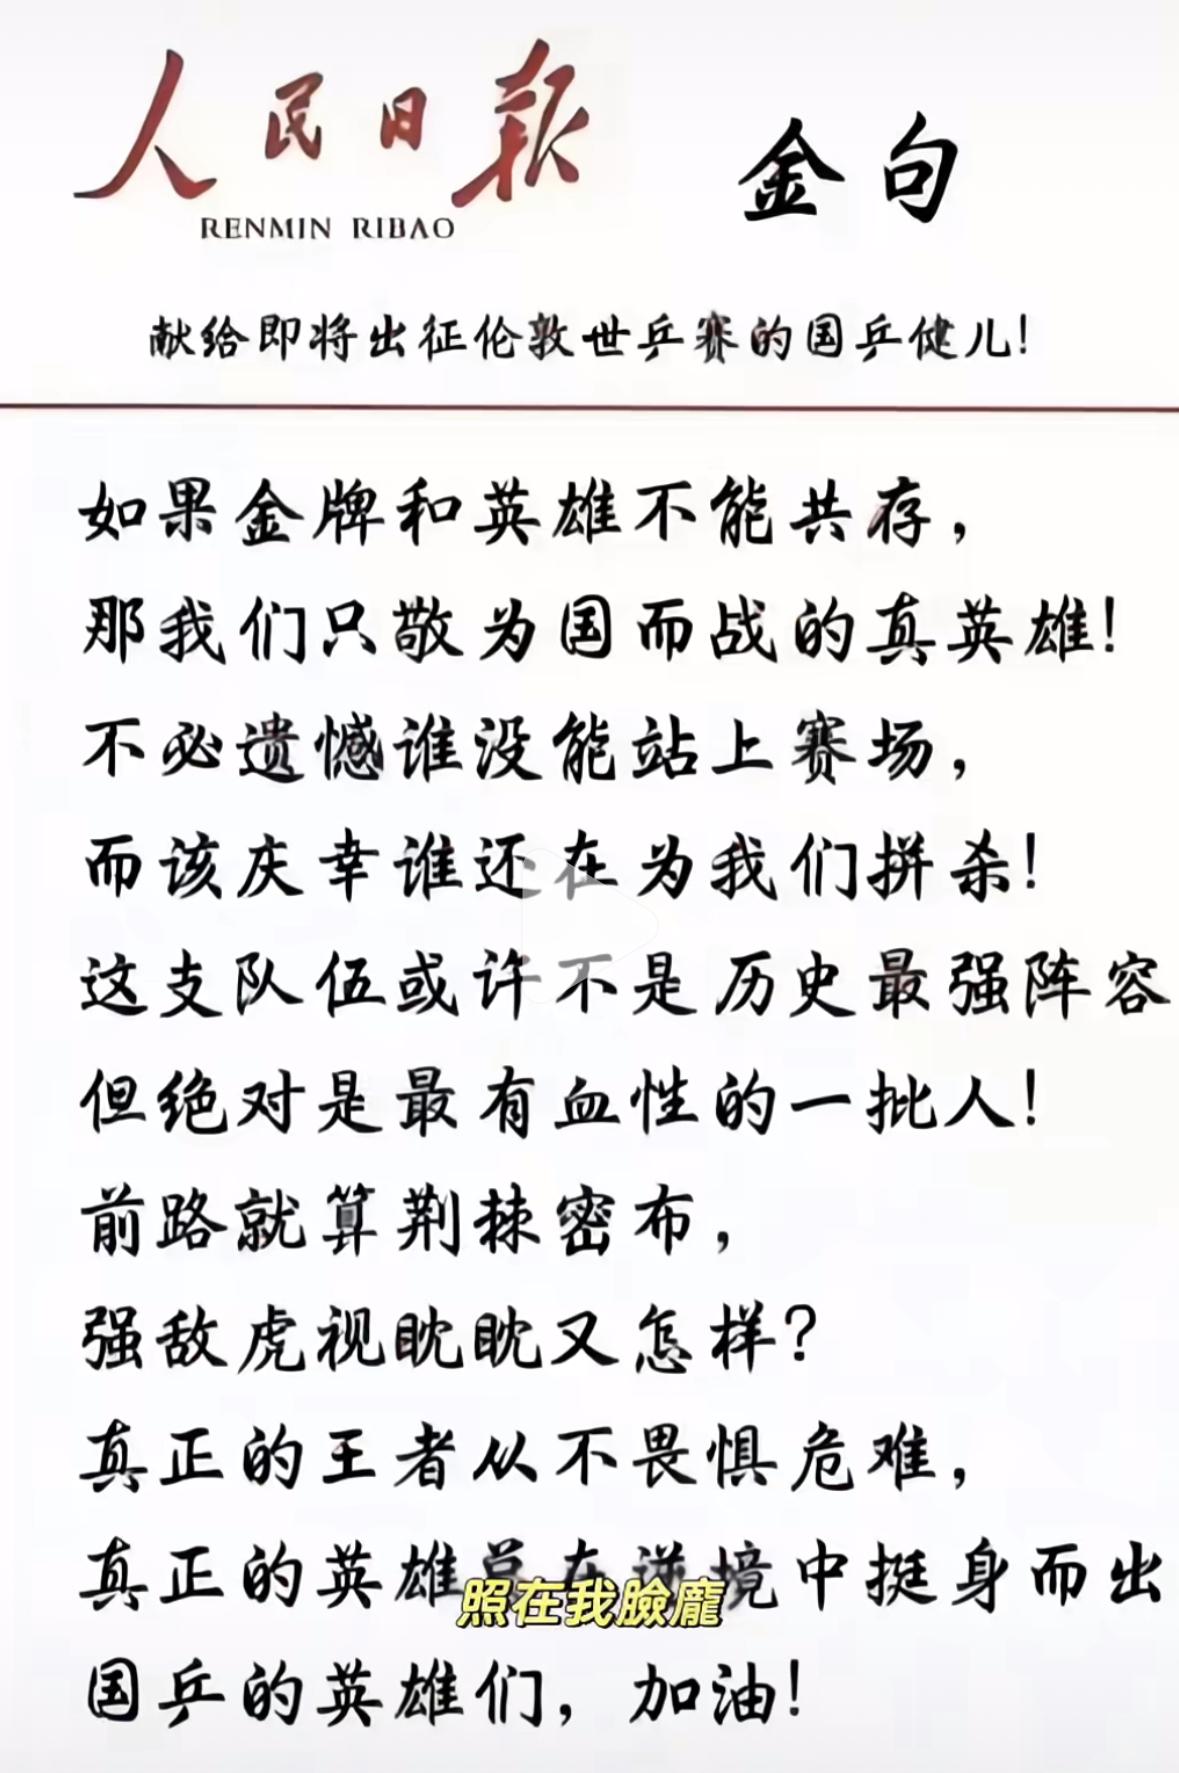 人民日报 金句
RENMIN RIBAO
献给即将出征伦敦世乒赛的国乒健儿!
如果金牌和英雄不能共存，
那我们只敬为国而战的真英雄!
不必遗憾谁没能站上赛场，
而该庆幸谁还在为我们拼杀!
这支队伍或许不是历史最强阵容
但绝对是最有血性的一批人!
前路就算荆棘密布，
强敌虎视眈眈又怎样?
真正的王者从不畏惧危难，
真正的英雄总在逆境中挺身而出
照在我臉龐
国乒的英雄们，加油!